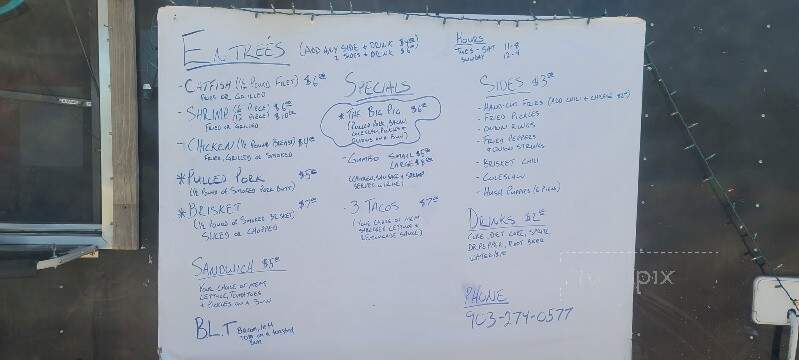 ENTREÉS (ADD ANY SIDE + DRINK $4.00
2 SIDES + DRINK $6.00)
- CATFISH (1/2 POUND FILET) $6.00
FRIED OR GRILLED
- SHRIMP (6 PIECE) $6.00
(12 PIECE) $10.00
FRIED OR GRILLED
- CHICKEN (1/2 POUND BREAST) $4.00
FRIED, GRILLED OR SMOKED
* PULLED PORK $5.00
(1/2 POUND OF SMOKED PORK BUTT)
* BRISKET $7.00
(1/2 POUND OF SMOKED BRISKET)
SLICED OR CHOPPED
SANDWICH $5.00
YOUR CHOICE OF MEAT
LETTUCE, TOMATOES
+ PICKLES ON A BUN
BLT BACON, LETT
TOM ON A TOASTED
BUN
SPECIALS
* THE BIG PIG $6.00
(PULLED PORK, BACON,
COLESLAW, PICKLES +
ON A BUN)
- GUMBO SMALL $5.00
LARGE $8.00
(CHICKEN, SAUSAGE + SHRIMP
SERVED W/ RICE)
- 3 TACOS $7.00
(YOUR CHOICE OF MEAT
SHREDDED LETTUCE +
SAUCE)
HOURS
TUES - SAT 11-8
SUNDAY 12-4
SIDES $3.00
- HAND-CUT FRIES (ADD CHILI + CHEESE $2.00)
- FRIED PICKLES
- ONION RINGS
- FRIED PEPPERS
+ ONION STRINGS
- BRISKET CHILI
- COLESLAW
- HUSH PUPPIES (6 PIECE)
DRINKS $2.00
COKE, DIET COKE, SPRITE
DR PEPPER, ROOT BEER
WATER
PHONE
903-274-0577